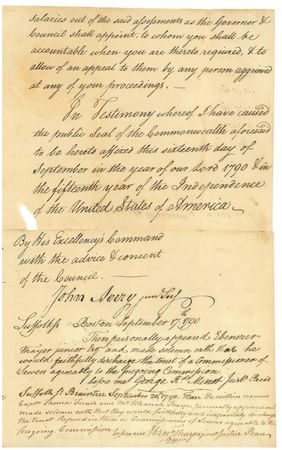 salaries out of the said assessments as the Governor &
Council shall appoint, to whom you shall be
accountable when you are thereto required, & to
allow of an appeal to them by any person aggrieved
at any of your proceedings. —
In Testimony whereof I have caused
the public Seal of the Commonwealth aforesaid
to be hereto affixed this sixteenth day of
September in the year of our Lord 1790 & in
the fifteenth year of the Independence
of the United States of America.
By His Excellency's Command
with the advice & consent
of the Council. —
John Avery junr Secy
Suffolk ss Boston September 17th 1790
Then personally appeared Ebenezer
Thayer junior Esqr and made solemn oath that he
would faithfully discharge the trust of a Commissioner of
Sewers agreeable to the foregoing Commission
before me George R. Minott Just. Pacis
Suffolk ss Braintree September 20, 1790. Then the within named
Captn Thomas and Mr Thayer personally appeared and
made solemn oath that they would faithfully and impartially discharge
the trust reposed in them as Commissioners of Sewers agreeable to the
foregoing Commission before me Thayer Justice Peace